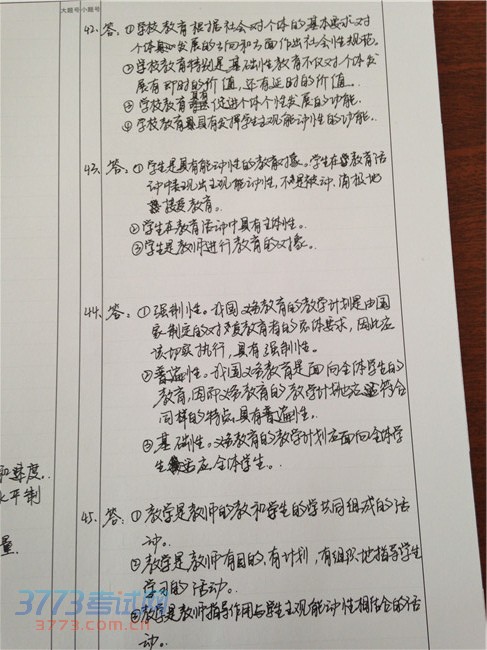 大题号 小题号
42. 答: ①学校教育根据社会对个体的基本要求对
个体发展的方向和方面作出社会性规范。
②学校教育特别是基础性教育不仅对个体发
展有即时的价值,还有延时的价值
③学校教育具有促进个体个性发展的功能.
④学校教育具有发挥学生主观能动性的功能.
43. 答: ①学生是具有能动性的教育对象。学生在教育活
动中表现出主观能动性,不是被动、消极地
接受教育。
②学生在教育活动中具有主体性。
③学生是教师进行教育的对象。
44. 答: ①强制性。我国义务教育的教学计划是由国
家制定的对教育者的总体要求,因此应
该切实执行,具有强制性。
②普遍性。我国义务教育是面向全体学生的
教育,因而义务教育的教学计划也应符合
同样的特点,具有普遍性.
③基础性。义务教育的教学计划应面向全体学
生适应全体学生。
和速度.
水平制
量.
45. 答: ①教学是教师的教和学生的学共同组成的活
动。
②教学是教师有目的,有计划,有组织地指导学生
学习的活动。
③教学是教师指导作用与学生主观能动性相结合的活
动。
3773考试网
3773.com.cn